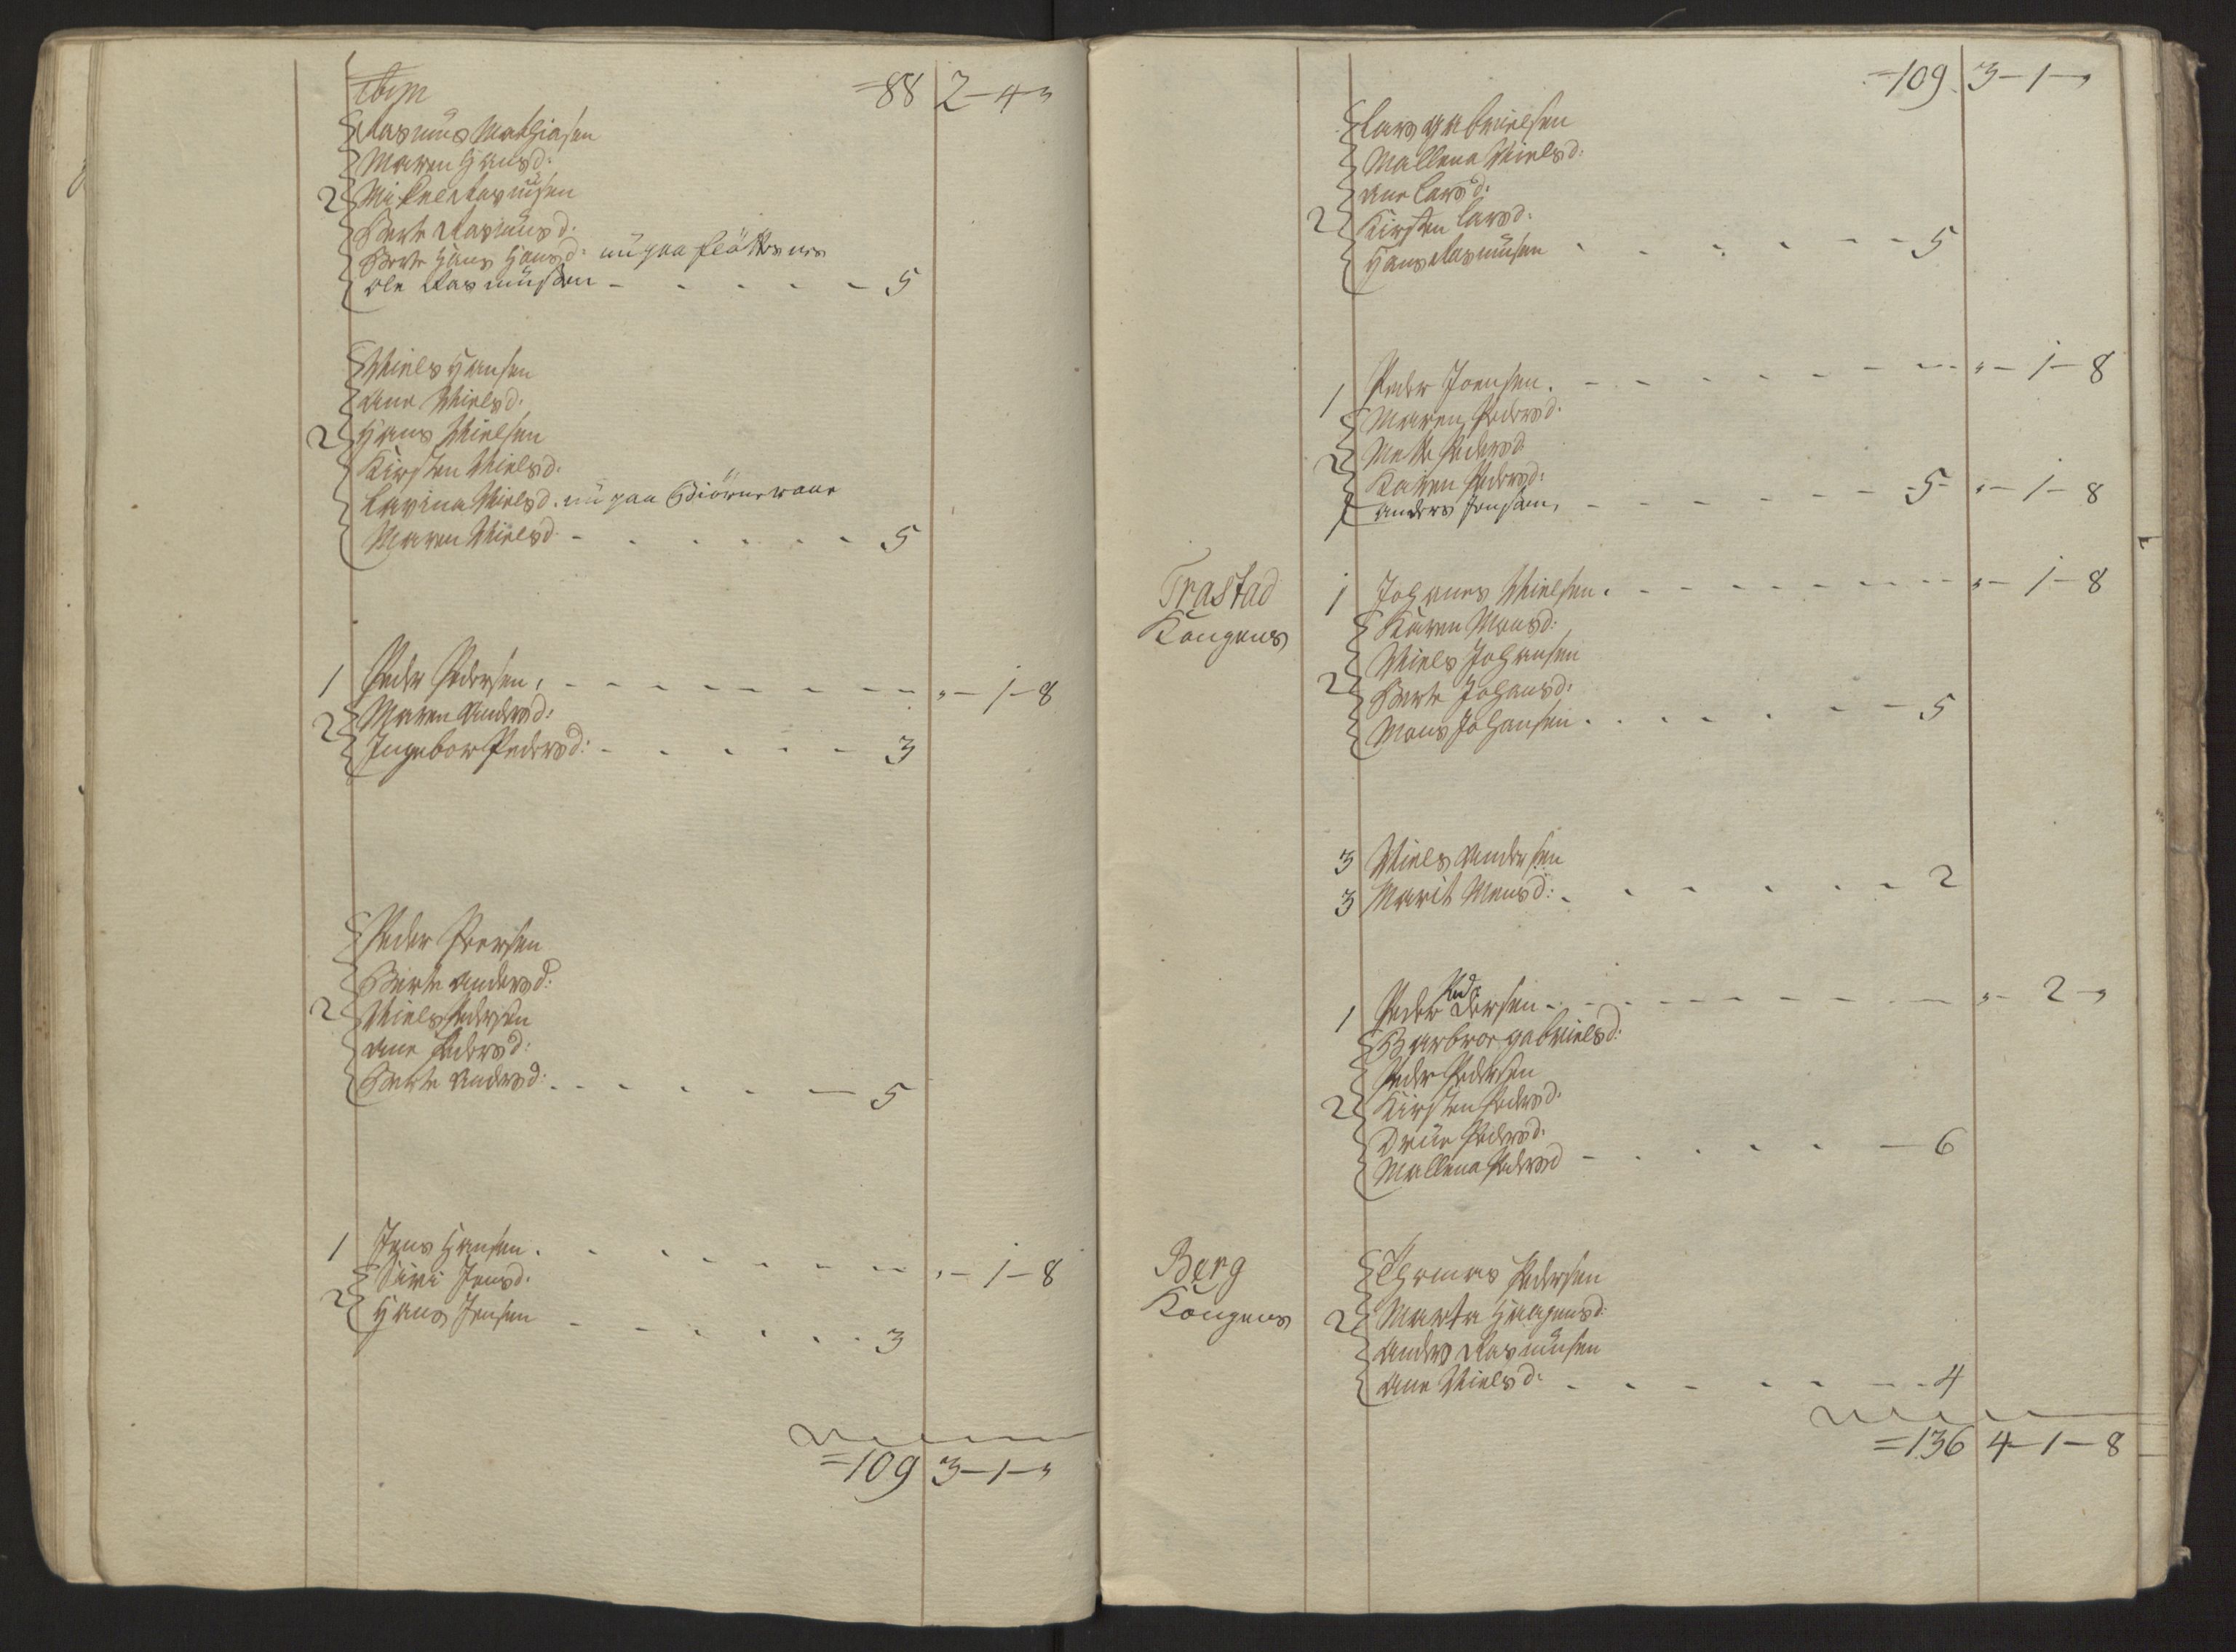 =88 2-4-"
Rasmus Mathiasen
Maren Hansd:
2 Mikkel Rasmusen
Berte Rasmusd:
Berte Hans Hansd: nu paa
Ole Rasmussen - - - - - 5
Niels Hansen
Ane Nielsd:
2 Hans Nielsen
Kirsten Nielsd:
Lavina Nielsd. nu paa
Maren Nielsd - - - - - 5
1 Peder Pedersen, - - - - - - - - "-1-8
2 Maren Andersd:
Ingebor Pedersd: - - - - - 3
Peder Peersen
Berte Andersd:
2 Niels Pedersen
Ane Pedersd:
Berte Andersd: - - - - - 5
1 Jens Hansen. - - - - - - - "-1-8
Siri Jensd.
2 Hans Jensen - - - - - - 3
=109 3-1-"
=109 3-1-"
Lars Gabrielsen
Mallena Nielsd:
Ane Larsd:
2 Kirsten Larsd:
Hans Rasmusen - - - - - - 5
1 Peder Joensen. - - - - - - - - "-1-8
Maren Pedersd:
2 Mette Pedersd
Karen Pedersd:
1 Anders Jensen, - - - - - - 5- "-1-8
Trastad 1 Johanes Nielsen. - - - - - - - "-1-8
Kongens Karen Monsd:
Niels Johansen
2 Berte Johansd:
Mons Johansen. - - - - - - 5
3 Niels Andersen
3 Marit Monsd: - - - - - - 2
1 Peder Pedersen - - - - - - - - "-2-"
Barbroe Gabrielsd:
Peder Pedersen
2 Kirsten Pedersd:
Drüe Pedersd:
Mallena Pedersd - - - - - - 6
Berg Thomas Pedersen
Kongens 2 Marta Haagensd:
Anders Rasmusen
Ane Nielsd: - - - - - - 4
=136 4-1-8